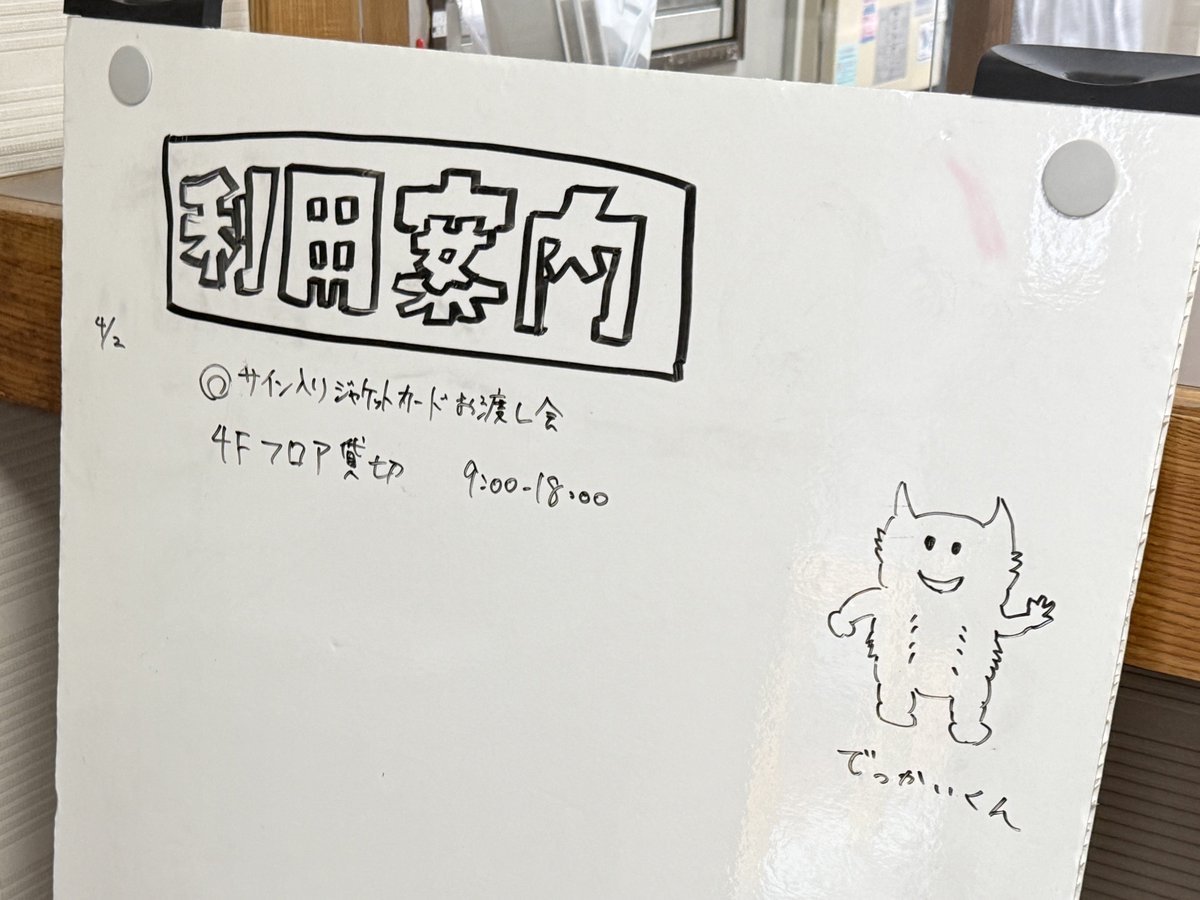 利用案内
4/2
◎サイン入りジャケットカードお渡し会
4Fフロア貸切 9:00-18:00
でっかいくん